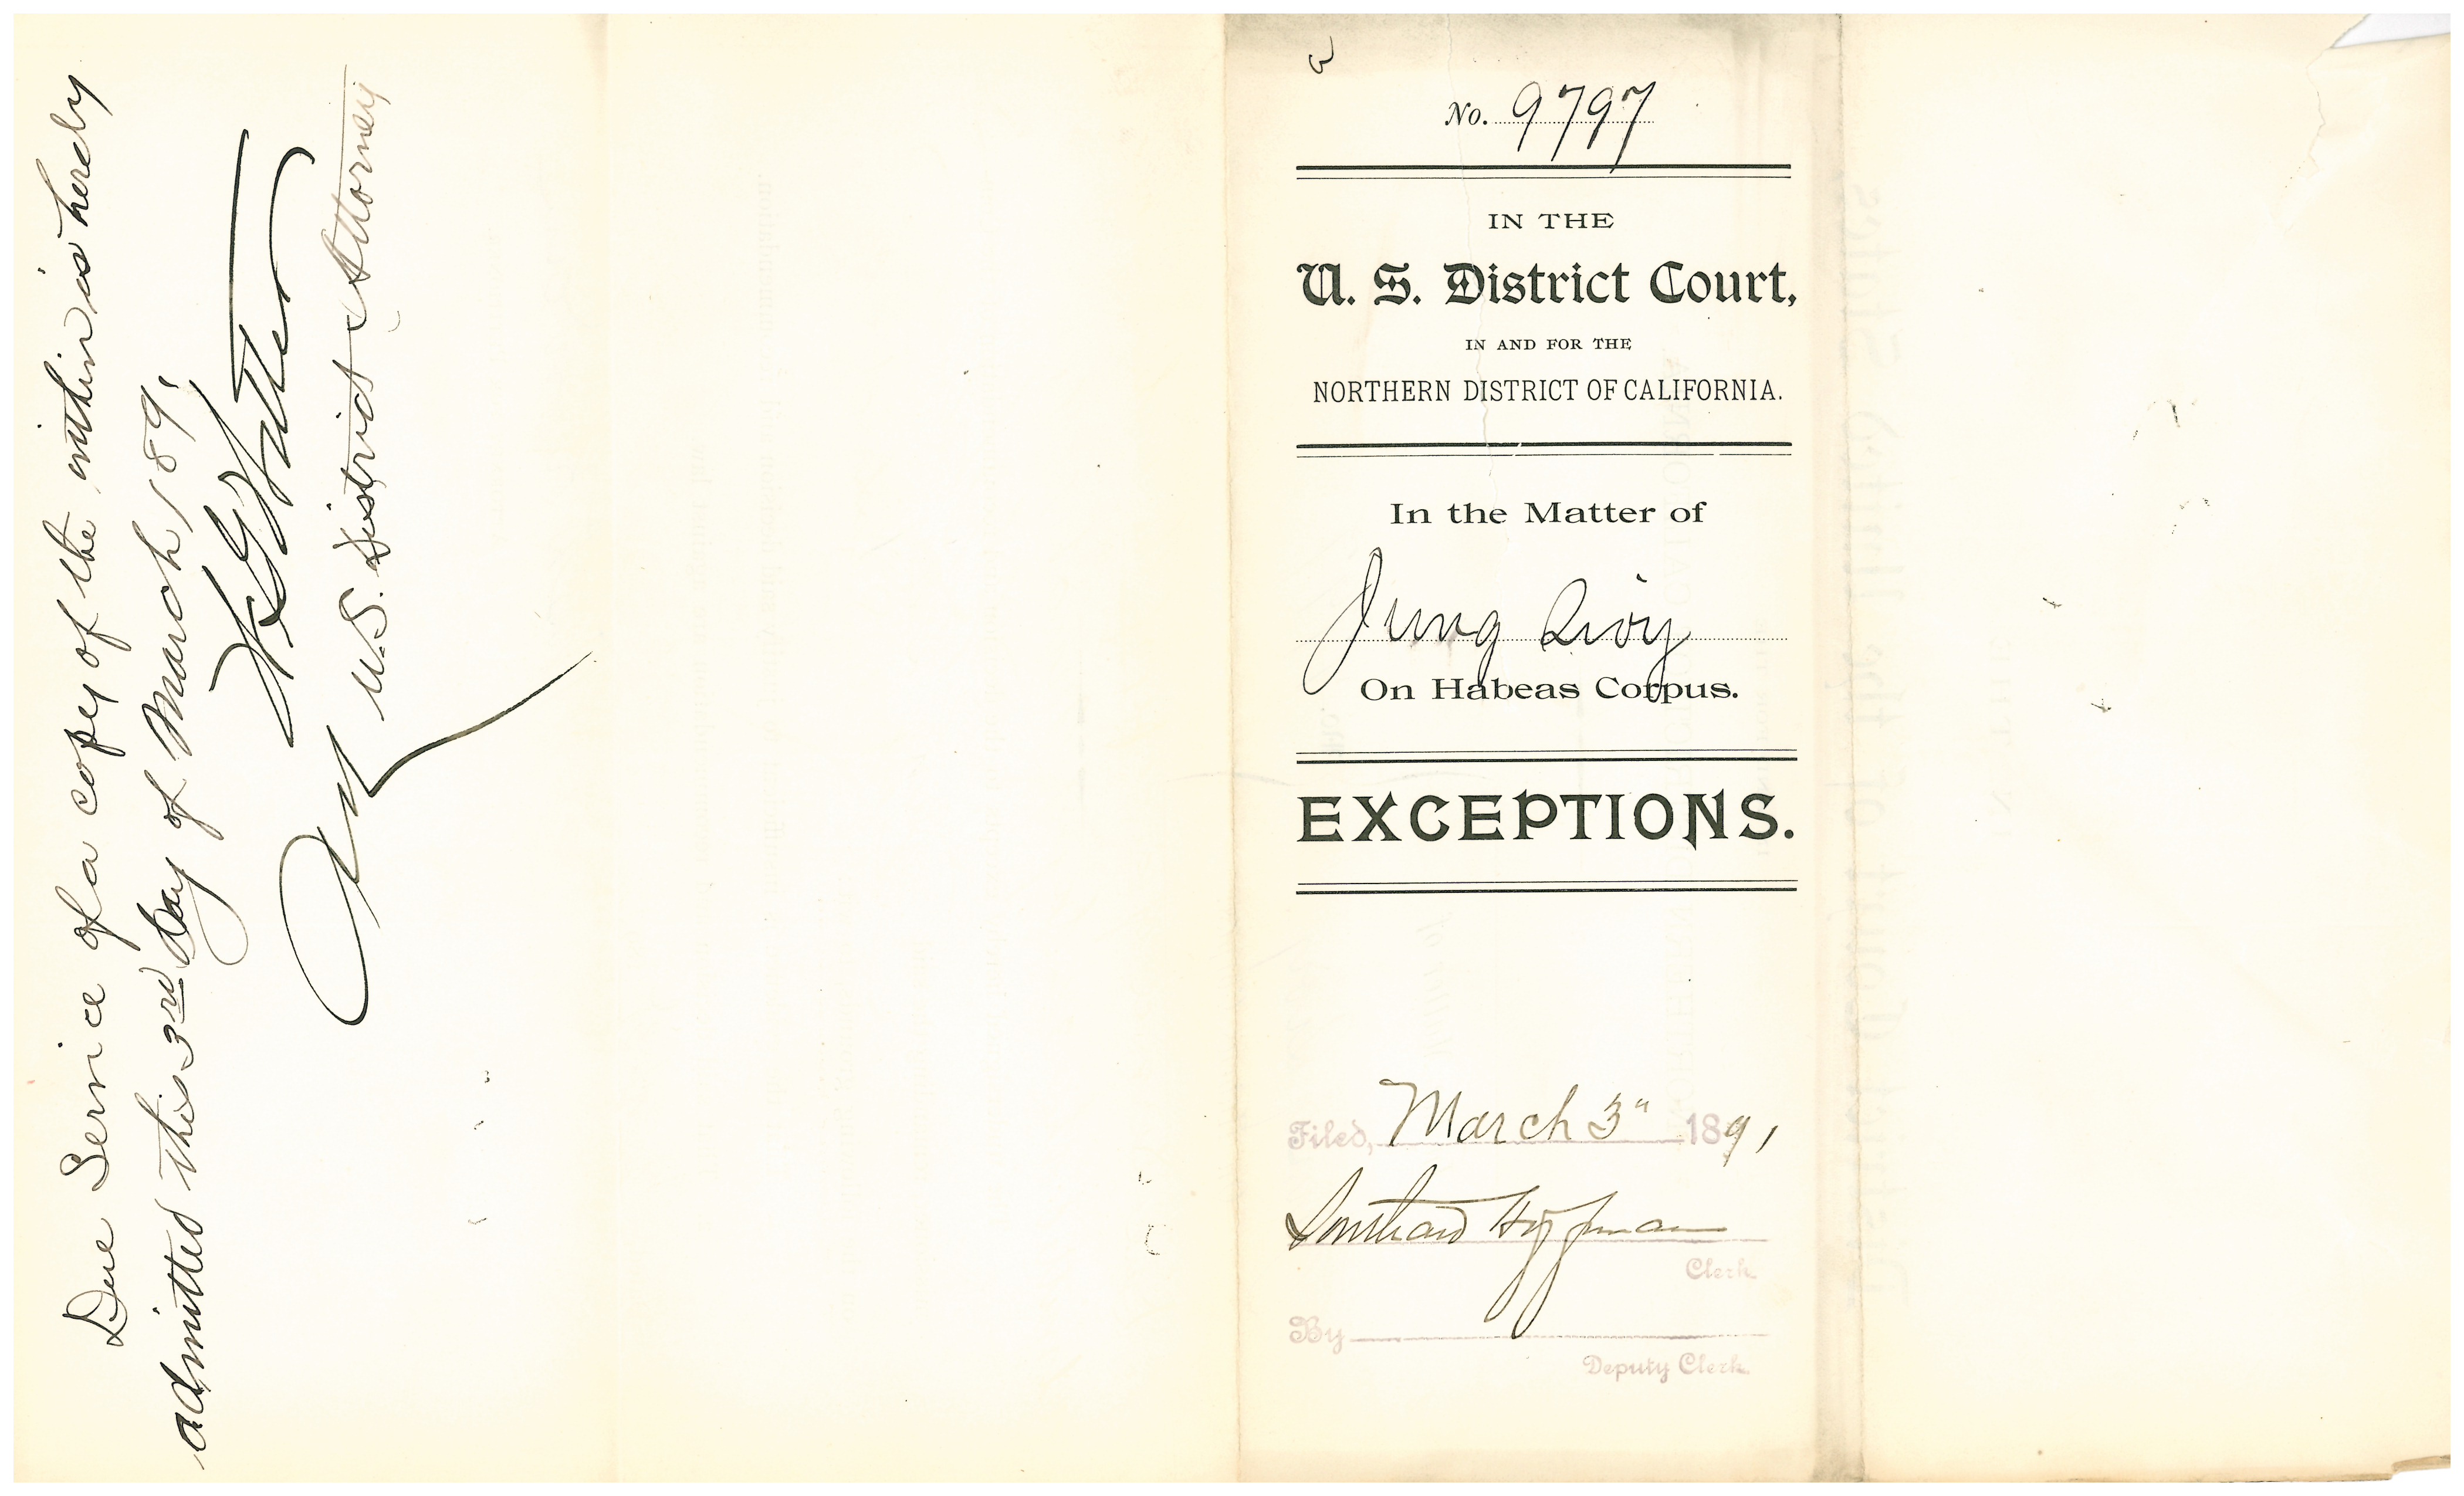 Due Service of a copy of the within is hereby
admitted this 3rd day of March 1891
U.S. District Attorney
No. 9797
IN THE
U. S. District Court,
IN AND FOR THE
NORTHERN DISTRICT OF CALIFORNIA.
In the Matter of
Jung Qioy
On Habeas Corpus.
EXCEPTIONS.
Filed, March 3" 1891
Southard Hoffman
Clerk
By
Deputy Clerk